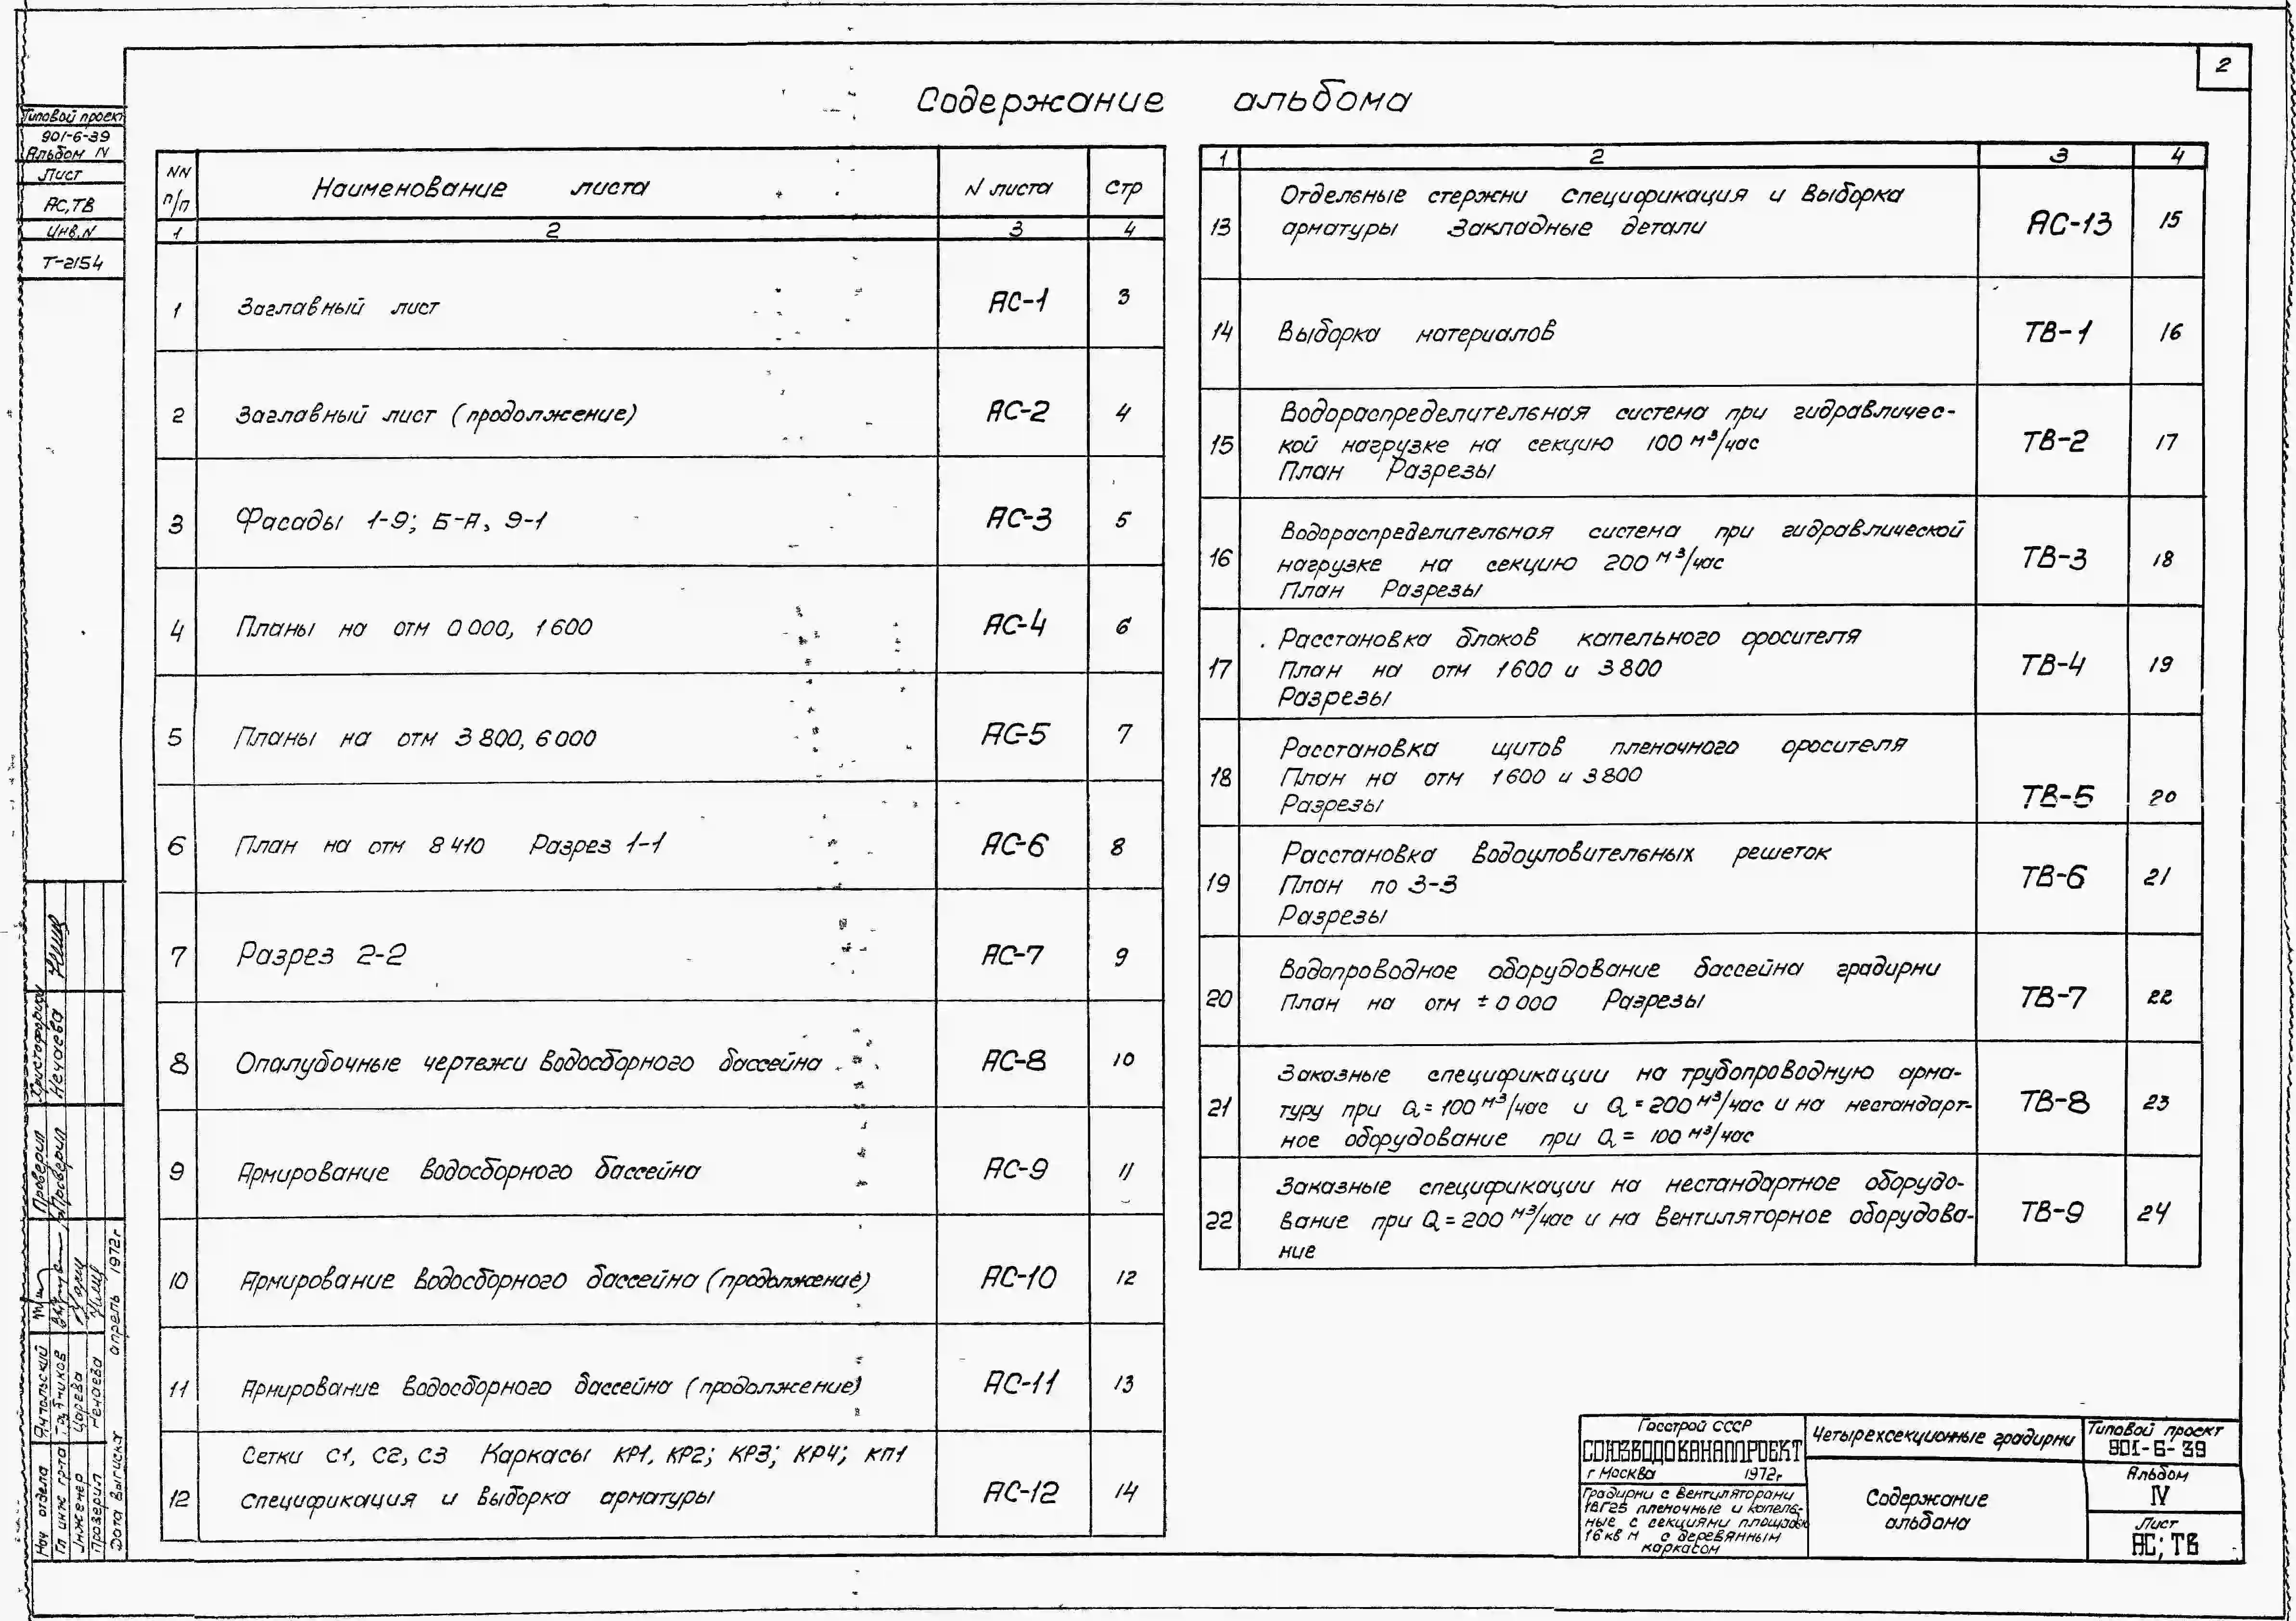 2
Содержание альбома
Типовой проект
901-6-39
Альбом IV
Лист
АС, ТВ
Инв. N
Т-2154
NN п/п Наименование листа N листа Стр
1 2 3 4
1 Заглавный лист АС-1 3
2 Заглавный лист (продолжение) АС-2 4
3 Фасады 1-9; Б-А, 9-1 АС-3 5
4 Планы на отм 0 000, 1 600 АС-4 6
5 Планы на отм 3 800, 6 000 АС-5 7
6 План на отм 8 410 Разрез 1-1 АС-6 8
7 Разрез 2-2 АС-7 9
8 Опалубочные чертежи водосборного бассейна АС-8 10
9 Армирование водосборного бассейна АС-9 11
10 Армирование водосборного бассейна (продолжение) АС-10 12
11 Армирование водосборного бассейна (продолжение) АС-11 13
Сетки С1, С2, С3 Каркасы КР1, КР2; КР3; КР4; КП1
12 спецификация и выборка арматуры АС-12 14
1 2 3 4
Отдельные стержни Спецификация и выборка
13 арматуры Закладные детали АС-13 15
14 Выборка материалов ТВ-1 16
Водораспределительная система при гидравличес-
15 кой нагрузке на секцию 100 м³/час ТВ-2 17
План Разрезы
Водораспределительная система при гидравлической
16 нагрузке на секцию 200 м³/час ТВ-3 18
План Разрезы
Расстановка блоков капельного оросителя
17 План на отм 1 600 и 3 800 ТВ-4 19
Разрезы
Расстановка щитов пленочного оросителя
18 План на отм 1 600 и 3 800
Разрезы ТВ-5 20
Расстановка водоуловительных решеток
19 План по 3-3 ТВ-6 21
Разрезы
Водопроводное оборудование бассейна градирни
20 План на отм ± 0 000 Разрезы ТВ-7 22
Заказные спецификации на трубопроводную арма-
21 туру при Q = 100 м³/час и Q = 200 м³/час и на нестандарт- ТВ-8 23
ное оборудование при Q = 100 м³/час
Заказные спецификации на нестандартное оборудо-
22 вание при Q = 200 м³/час и на вентиляторное оборудова- ТВ-9 24
ние
Госстрой СССР
СОЮЗВОДОКАНАЛПРОЕКТ
г Москва 1972г
Градирни с вентиляторами
1ВГ25 пленочные и капель-
ные с секциями площадью
16 кв м с деревянным
каркасом
Четырехсекционные градирни
Содержание
альбома
Типовой проект
901-6-39
Альбом
IV
Лист
АС; ТВ
Нач отдела Ямпольский Проверил
Гл инж пр-та Проверил Нечаева
Инженер Царева
Проверил Нечаева
Дата выписка апрель 1972г